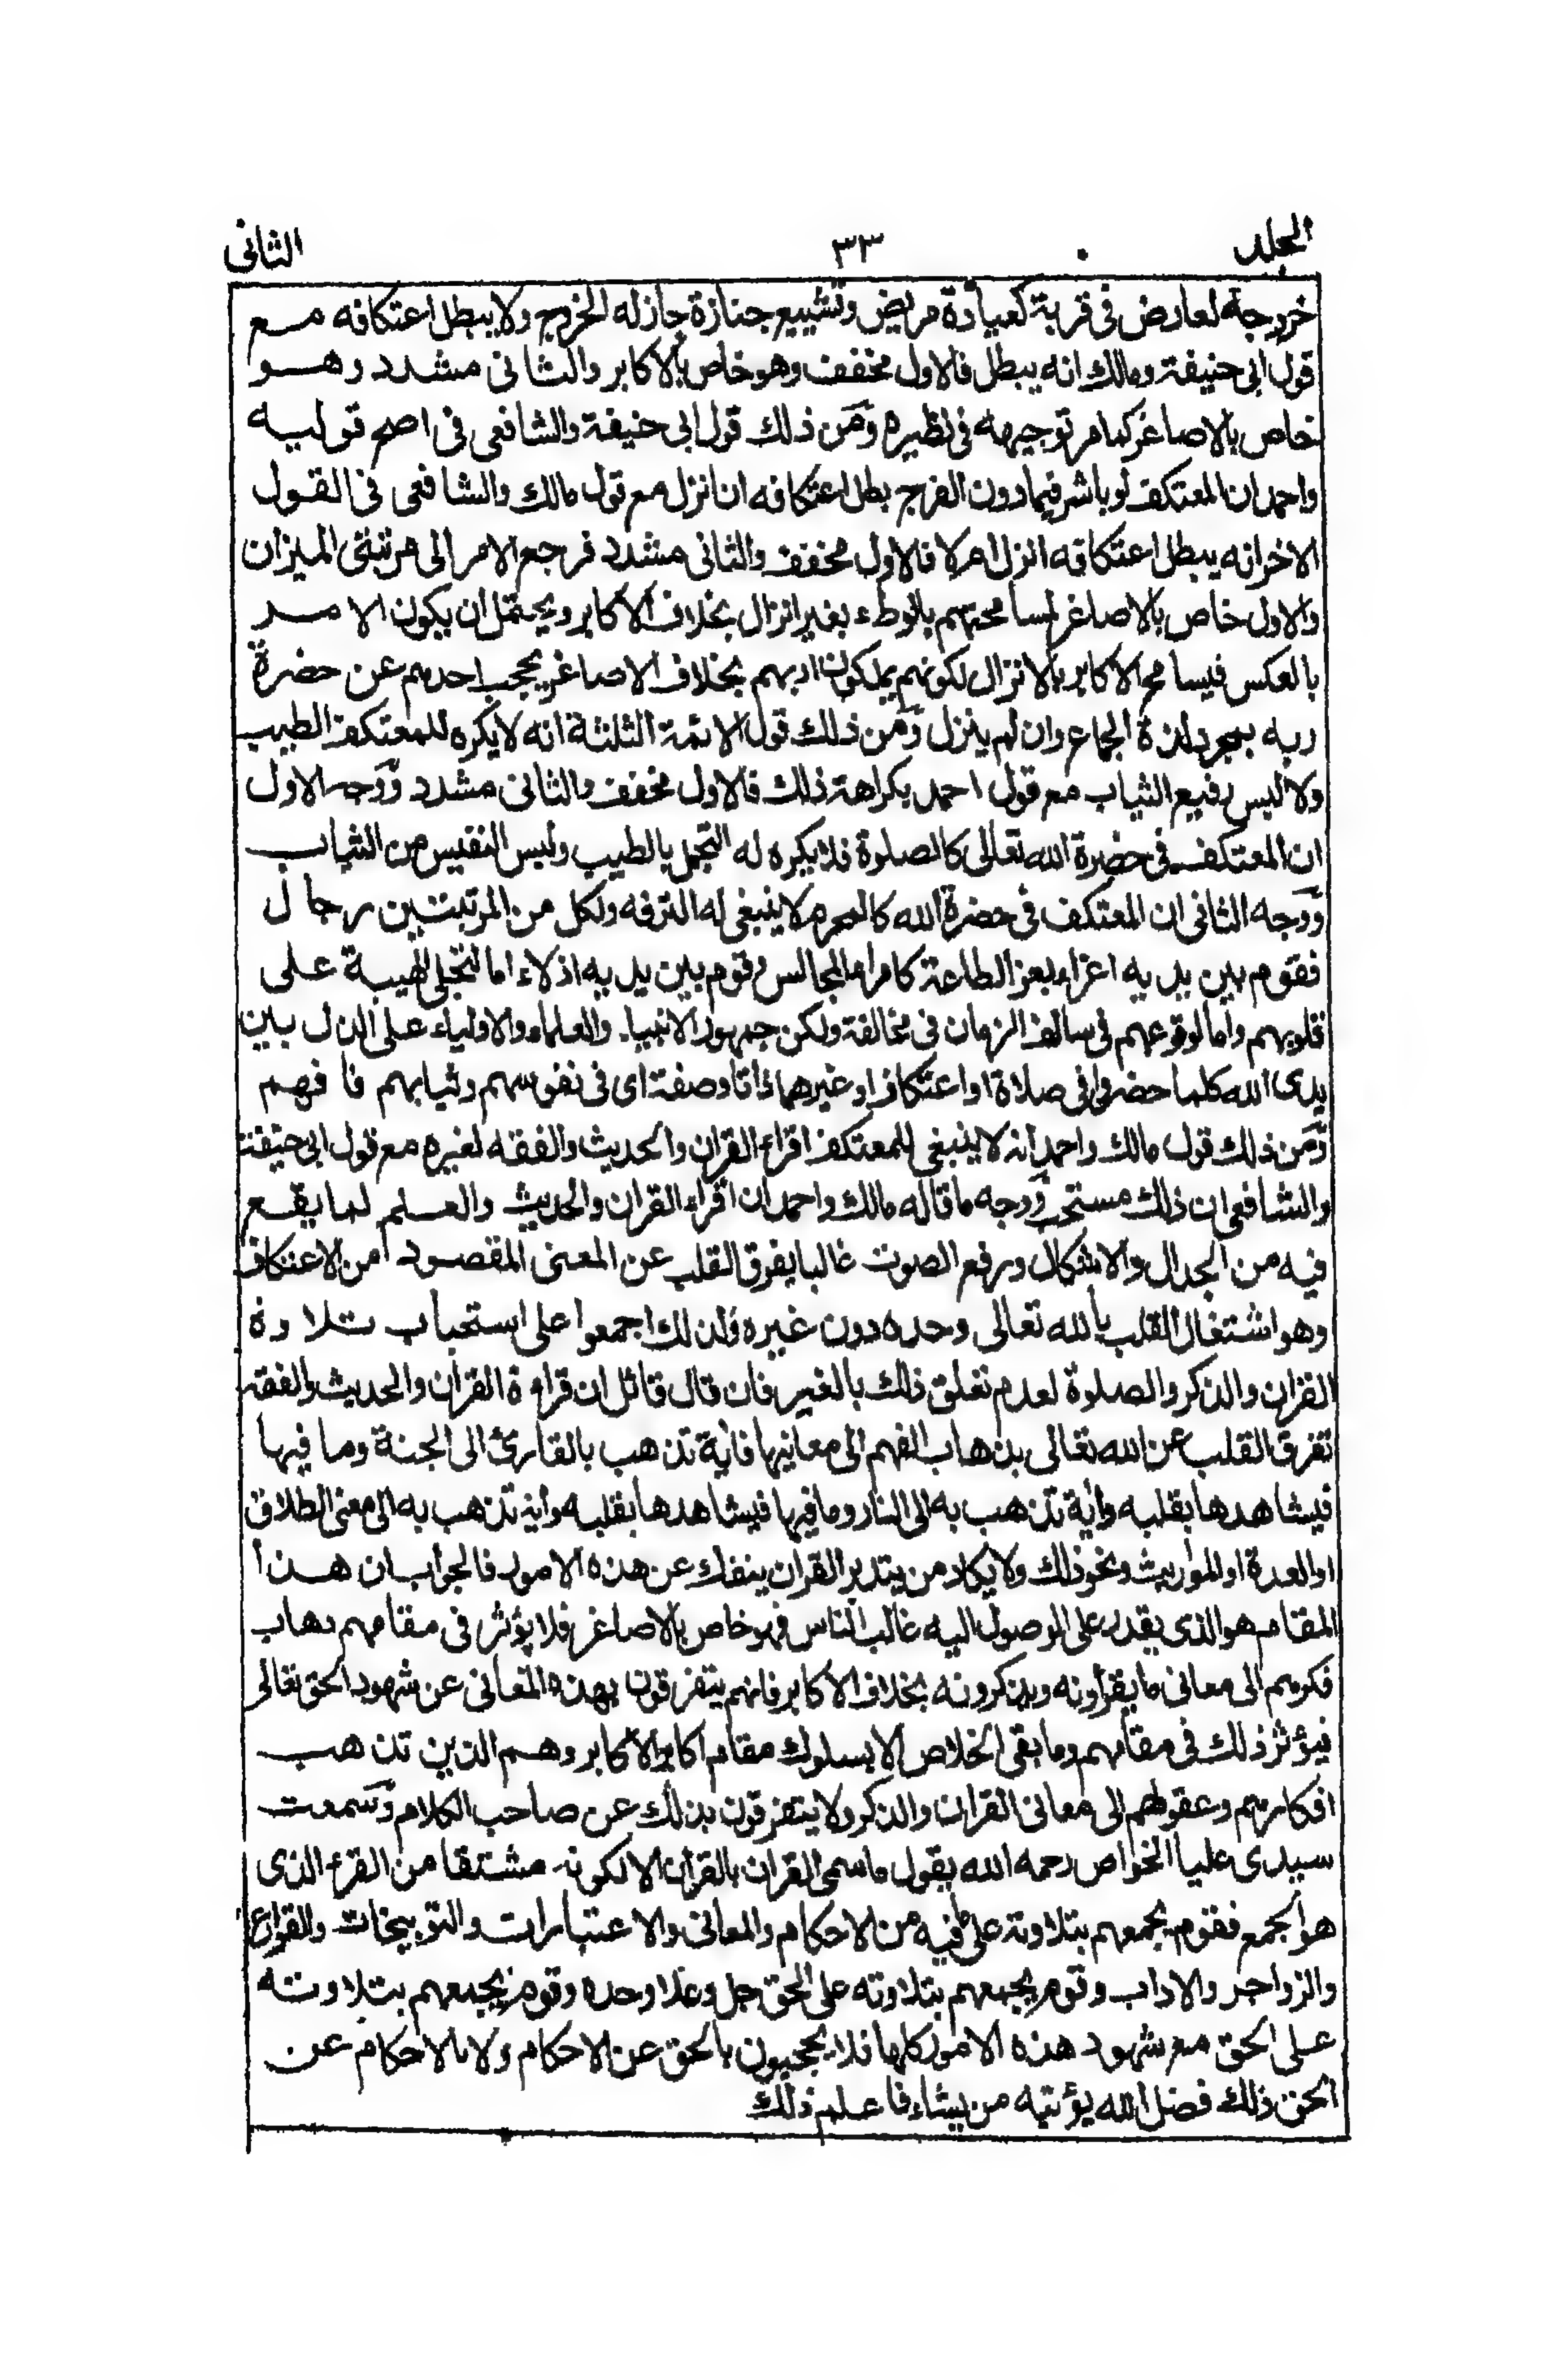 الجلد ٣٣ الثانى
خروجه لعارض فى قربة كعيادة مريض وتشييع جنازة جاز له الخروج ولا يبطل اعتكافه مع
قول ابى حنيفة ومالك انه يبطل فالاول مخفف وهو خاص بالاكابر والثانى مشدد وهو
خاص بالاصاغر كما مر توجيهه فى نظيره ومن ذلك قول ابى حنيفة والشافعى فى اصح قوليه
واحمد ان المعتكف لو باشر فيما دون الفرج بطل اعتكافه ان انزل مع قول مالك والشافعى فى القول
الاخر انه يبطل اعتكافه انزل ام لا فالاول مخفف والثانى مشدد فرجع الامر الى مرتبتى الميزان
والاول خاص بالاصاغر لمسامحتهم بالوطء بغير انزال بخلاف الاكابر ويحتمل ان يكون الامر
بالعكس فيسامح الاكابر بالانزال لكونهم يملكون اربهم بخلاف الاصاغر يحجب احدهم عن حضرة
ربه بمجرد لذة الجماع وان لم ينزل ومن ذلك قول الائمة الثلثة انه لا يكره للمعتكف الطيب
ولا لبس رفيع الثياب مع قول احمد بكراهة ذلك فالاول مخفف والثانى مشدد ووجه الاول
ان المعتكف فى حضرة الله تعالى كالصلوة فلا يكره له التجمل بالطيب ولبس النفيس من الثياب
ووجه الثانى ان المعتكف فى حضرة الله كالمحرم لا ينبغى له الترفه ولكل من المرتبتين رجال
فقوم بين يديه اعزاء بعز الطاعة كامراء المجالس وقوم بين يديه اذلاء اما لتجلى الهيبة على
قلوبهم واما لوقوعهم فى سالف الزمان فى مخالفة ولكن جمهور الانبياء والعلماء والاولياء على الذل بين
يدى الله كلما حضروا فى صلاة او اعتكاف او غيرهما ذاتا وصفة اى فى نفوسهم وثيابهم فافهم
ومن ذلك قول مالك واحمد انه لا ينبغى للمعتكف اقراء القران والحديث والفقه لغيره مع قول ابى حنيفة
والشافعى ان ذلك مستحب ووجه ما قاله مالك واحمد ان اقراء القران والحديث والعلم لما يقع
فيه من الجدال والاشكال ورفع الصوت غالبا يفرق القلب عن المعنى المقصود من الاعتكاف
وهو اشتغال القلب بالله تعالى وحده دون غيره ولذلك اجمعوا على استحباب تلاوة
القران والذكر والصلوة لعدم تعلق ذلك بالغير فان قال قائل ان قراءة القران والحديث والفقه
تفرق القلب عن الله تعالى بذهاب الفهم الى معانيها فاية تذهب بالقارئ الى الجنة وما فيها
فيشاهدها بقلبه واية تذهب به الى النار وما فيها فيشاهدها بقلبه واية تذهب به الى معنى الطلاق
او العدة او المواريث ونحو ذلك ولا يكاد من يتدبر القران ينفك عن هذه الامور فالجواب ان هذا
المقام هو الذى يقدر على الوصول اليه غالب الناس فهو خاص بالاصاغر فلا يؤثر فى مقامهم ذهاب
فكرهم الى معانى ما يقرأونه ويذكرونه بخلاف الاكابر فانهم يتفرقون بهذه المعانى عن شهود الحق تعالى
فيؤثر ذلك فى مقامهم وما بقى الخلاص الا بسلوك مقام اكابر الاكابر وهم الذين تذهب
افكارهم وعقولهم الى معانى القران والذكر ولا يتفرقون بذلك عن صاحب الكلام وسمعت
سيدى عليا الخواص رحمه الله يقول ما سمى القران بالقران الا لكونه مشتقا من القرء الذى
هو الجمع فقوم يجمعهم بتلاوته على ما فيه من الاحكام والمعانى والاعتبارات والتوبيخات والقوارع
والزواجر والاداب وقوم يجمعهم بتلاوته على الحق جل وعلا وحده وقوم يجمعهم بتلاوته
على الحق مع شهود هذه الامور كلها فلا يحجبون بالحق عن الاحكام ولا بالاحكام عن
الحق ذلك فضل الله يؤتيه من يشاء فاعلم ذلك